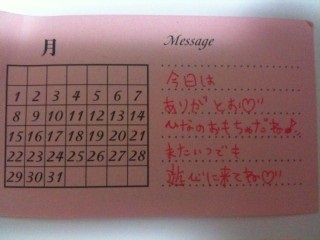 月
1 2 3 4 5 6 7
8 9 10 11 12 13 14
15 16 17 18 19 20 21
22 23 24 25 26 27 28
29 30 31
Message
今日は
ありがとお♡
ひなのおもちゃだね♪
またいつでも
遊びに来てね♡